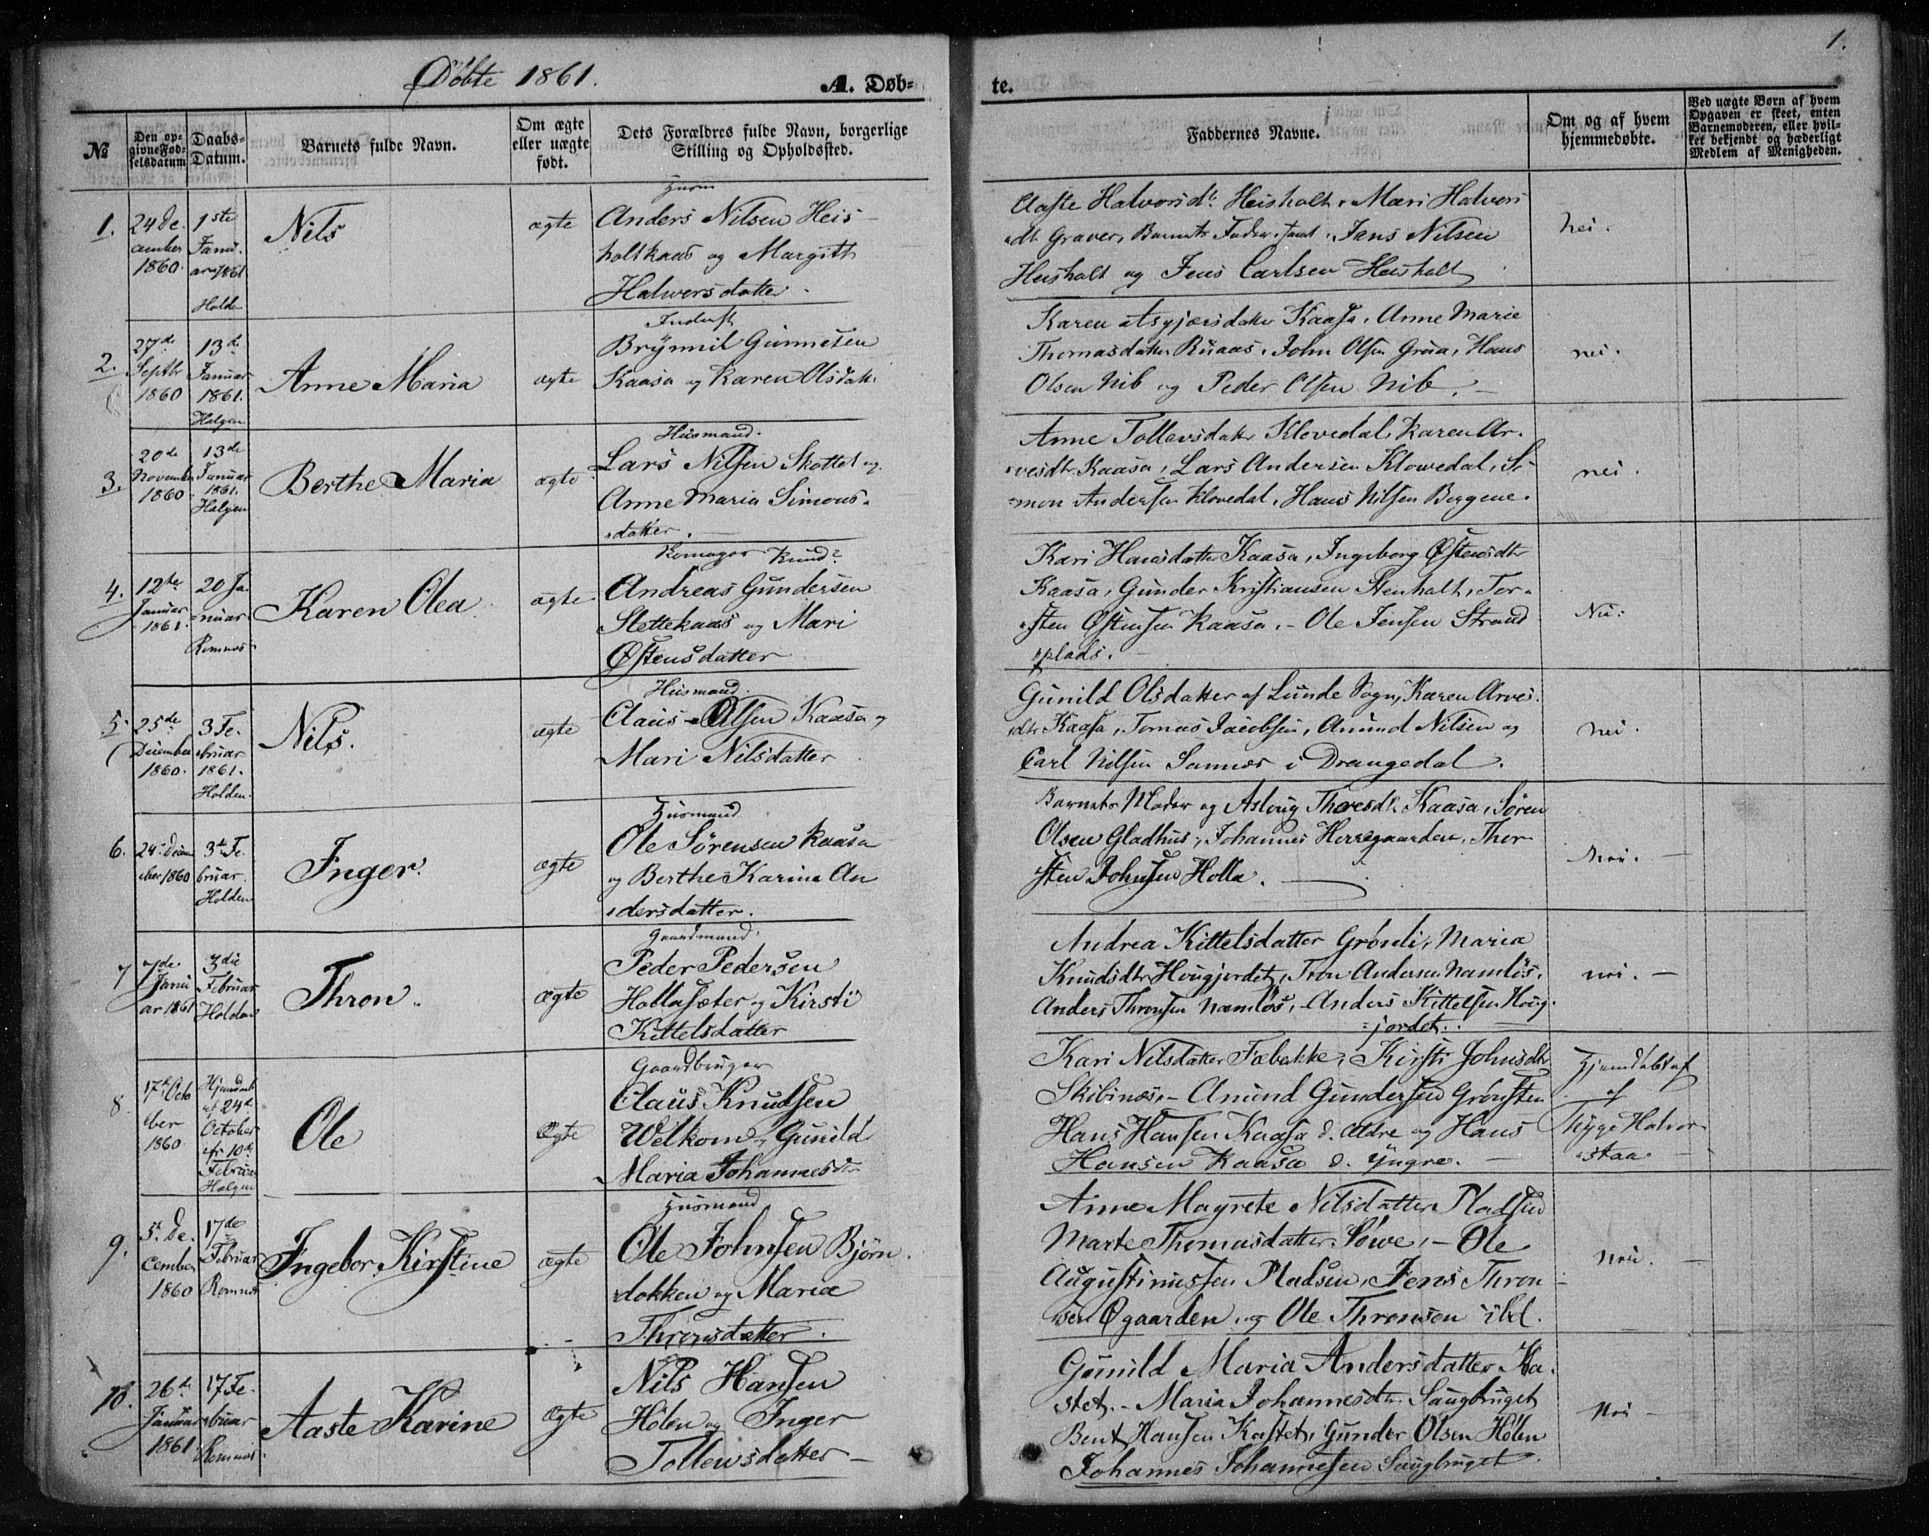 Døbte 1861.
A. Døb-
te.
1.
№
Den op-
givne Fød-
selsdatum
Daabs-
Datum.
Barnets fulde Navn.
Om ægte
eller uægte
født.
Dets Forældres fulde Navn, borgerlige
Stilling og Opholdssted.
Faddernes Navne.
Om og af hvem
hjemmedøbte.
Ved uægte Børn af hvem
Opgaven er skeet, enten
Barnemoderen, eller hvil-
ket bekjendt og hæderligt
Medlem af Menigheden.
1.
24 De-
cember
1860.
1ste
Janu-
ar 1861
Holden
Nils
ægte
Anders Nilsen Heis-
holtkaas og Margith
Halvorsdatter.
Aaste Halvorsdt. Heisholt, Mari Halvors
dt. Graver, Barnets Fader, samt Jens Nilsen
Heisholt og Jens Carlsen Heisholt
nei.
2.
27de
Septbr
1860
13de
Januar
1861.
Helgen
Anne Maria
ægte
Inderst
Brynnil Gunnesen
Kaasa og Karen Olsdatr
Karen Kaasa, Anne Marie
Thomasdatter Ruaas, John Olsen Grua, Hans
Olsen Nib og Peder Olsen Nib.
nei.
3.
20de
November
1860
13de
Januar
1861.
Helgen
Berthe Maria
ægte
Husmand.
Lars Nilsen Skottet og
Anne Maria Simons-
datter.
Anne Tollevsdatter Klovedal, Karen Ar-
vesdtr Kaasa, Lars Andersen Klowedal, Si-
mon Andersen Klovedal, Hans Nilsen Bergene.
nei
4.
12te
Januar
1861.
20 Ja-
nuar
Romnes
Karen Olea.
ægte
Andreas Gundersen
Slettekaas og Mari
Østensdatter
Kari Hansdatter Kaasa, Ingeborg Østensdtr
Kaasa, Gunder Kristiansen Stenholt, Tor-
sten Østensen Kaasa. - Ole Jensen Strand
plads.
Nei:
5.
25de
December
1860.
3 Fe-
bruar
1861.
Holden.
Nils.
ægte
Husmand.
Claus Olsen Kaasa og
Mari Nilsdatter
Gunild Olsdatter af Lunde Sogn, Karen Arves-
dtr Kaasa, Tomas Jacobsen, Amund Nilsen og
Carl Nilsen Sannes i Drangedal.
nei.
6.
24de Decem-
ber 1860
3de Fe-
bruar.
Holden
Inger.
ægte
Husmand
Ole Sørensen Kaasa
og Berthe Karine An
dersdatter.
Barnets Moder og Asloug Thoresdt. Kaasa, Søren
Olsen Gladhus, Johannes Herregaarden, Thor-
sten Johnsen Holla.
Nei.
7
7de
Janu
ar 1861
3die
Februar
Holden
Thron.
ægte
Gaardmand.
Peder Pedersen
Hollasæter og Kirsti
Kittelsdatter
Andrea Kittelsdatter Grønli, Maria
Knudsdtr Hougjordet, Tron Andersen Namløs,
Anders Thronsen Namløs, Anders Kittelsen Houg-
jordet.
nei.
8.
17de Octo
ber
1860
24de
October
10de
Februar
Helgen
Ole
Ægte
Gaardbruger
Claus Knudsen
Welkom og Gunild
Maria Johannesdtr
Kari Nilsdatter Fæbakke, Kirsti Johnsdtr
Skibinæs, - Amund Gundersen Grønsten
Hans Hansen Kaasa d. Ældre og Hans
Hansen Kaasa d. Yngre.
Hjemdøbt af
af
Thyge Halvor-
staa
9.
5. De-
cember
1860
17de
Februar
Romnes
Ingebor Kirstine
ægte
Husmand
Ole Johnsen Bjørn-
dokken og Maria
Thronsdatter.
Anne Magrete Nilsdatter Pladsen
Marte Thomasdatter Søwe, - Ole
Augustinussen Pladsen, Jens Thron-
sen Øgaarden, og Ole Thronsen ibd.
Nei.
10.
26de
Januar
1861
17 Fe-
bruar
Romnes
Aaste Karine
Ægte
Nils Hansen
Hølen og Inger
Tollewsdatter
Gunild Maria Andersdatter Ka-
stet. - Maria Johannesdtr. Saugbruget
Bent Hansen Kastet, Gunder Olsen Hølen
Johannes Johannesen Saugbruget.
Nei